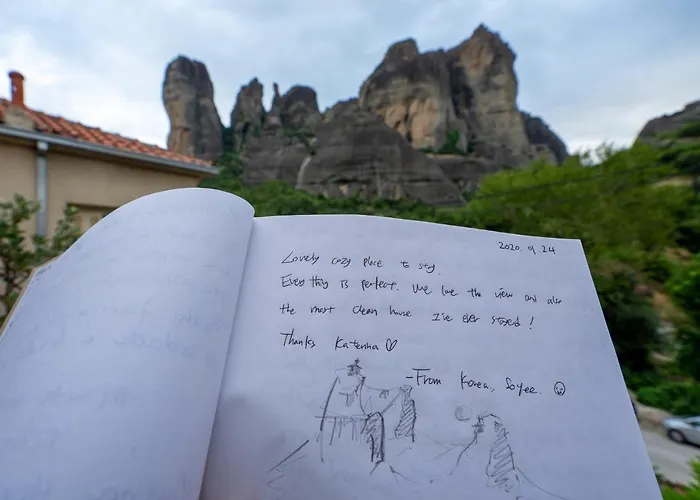 2020. 9. 24
Lovely cozy place to stay.
Everything is perfect. We love the view and also
the most clean house I've ever stayed!
Thanks Katerina ♡
-From Korea, Soyee. ☺